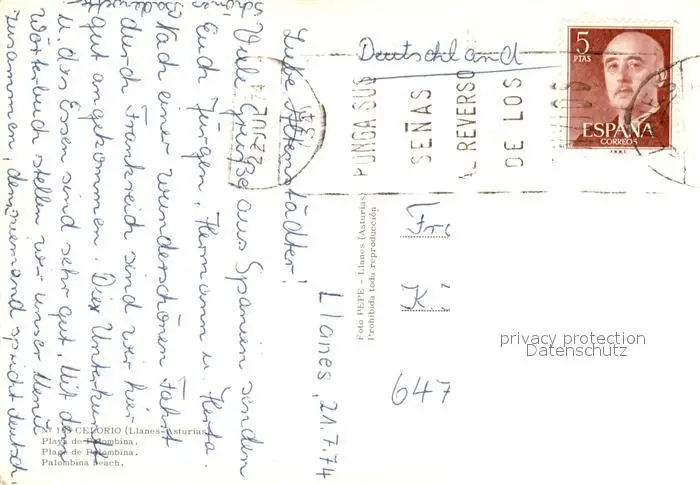 Llanes, 21.7.74
Liebe Altenstädter!
Viele Grüße aus Spanien senden
Euch Jürgen, Hermann u. Herta.
Nach einer wunderschönen Fahrt
durch Frankreich sind wir hier
gut angekommen. Die Unterkunft
u. das Essen sind sehr gut. Mit dem
Wörterbuch stellen wir unser Menü
zusammen, denn niemand spricht deutsch.
Deutschland
PONGA SUS
SEÑAS
AL REVERSO
DE LOS
5
PTAS
ESPAÑA
CORREOS
F.N.M.T.
Foto PEPE - Llanes (Asturias)
Prohibida toda reproducción
Fr
K
647
privacy protection
Datenschutz
CELORIO (Llanes-Asturias)
Playa de Palombina.
Plage de Palombina.
Palombina beach.